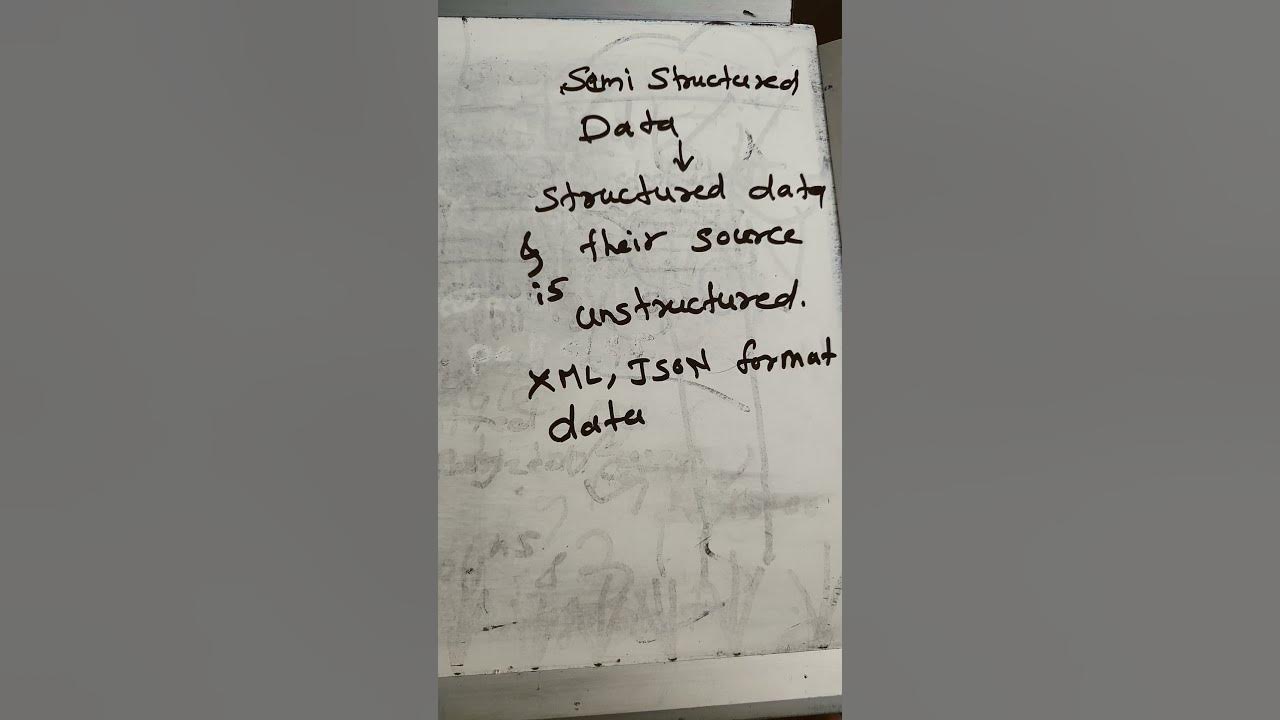 Semi Structured
Data
↓
Structured data
& their source
is
unstructured.
XML, JSON format
data